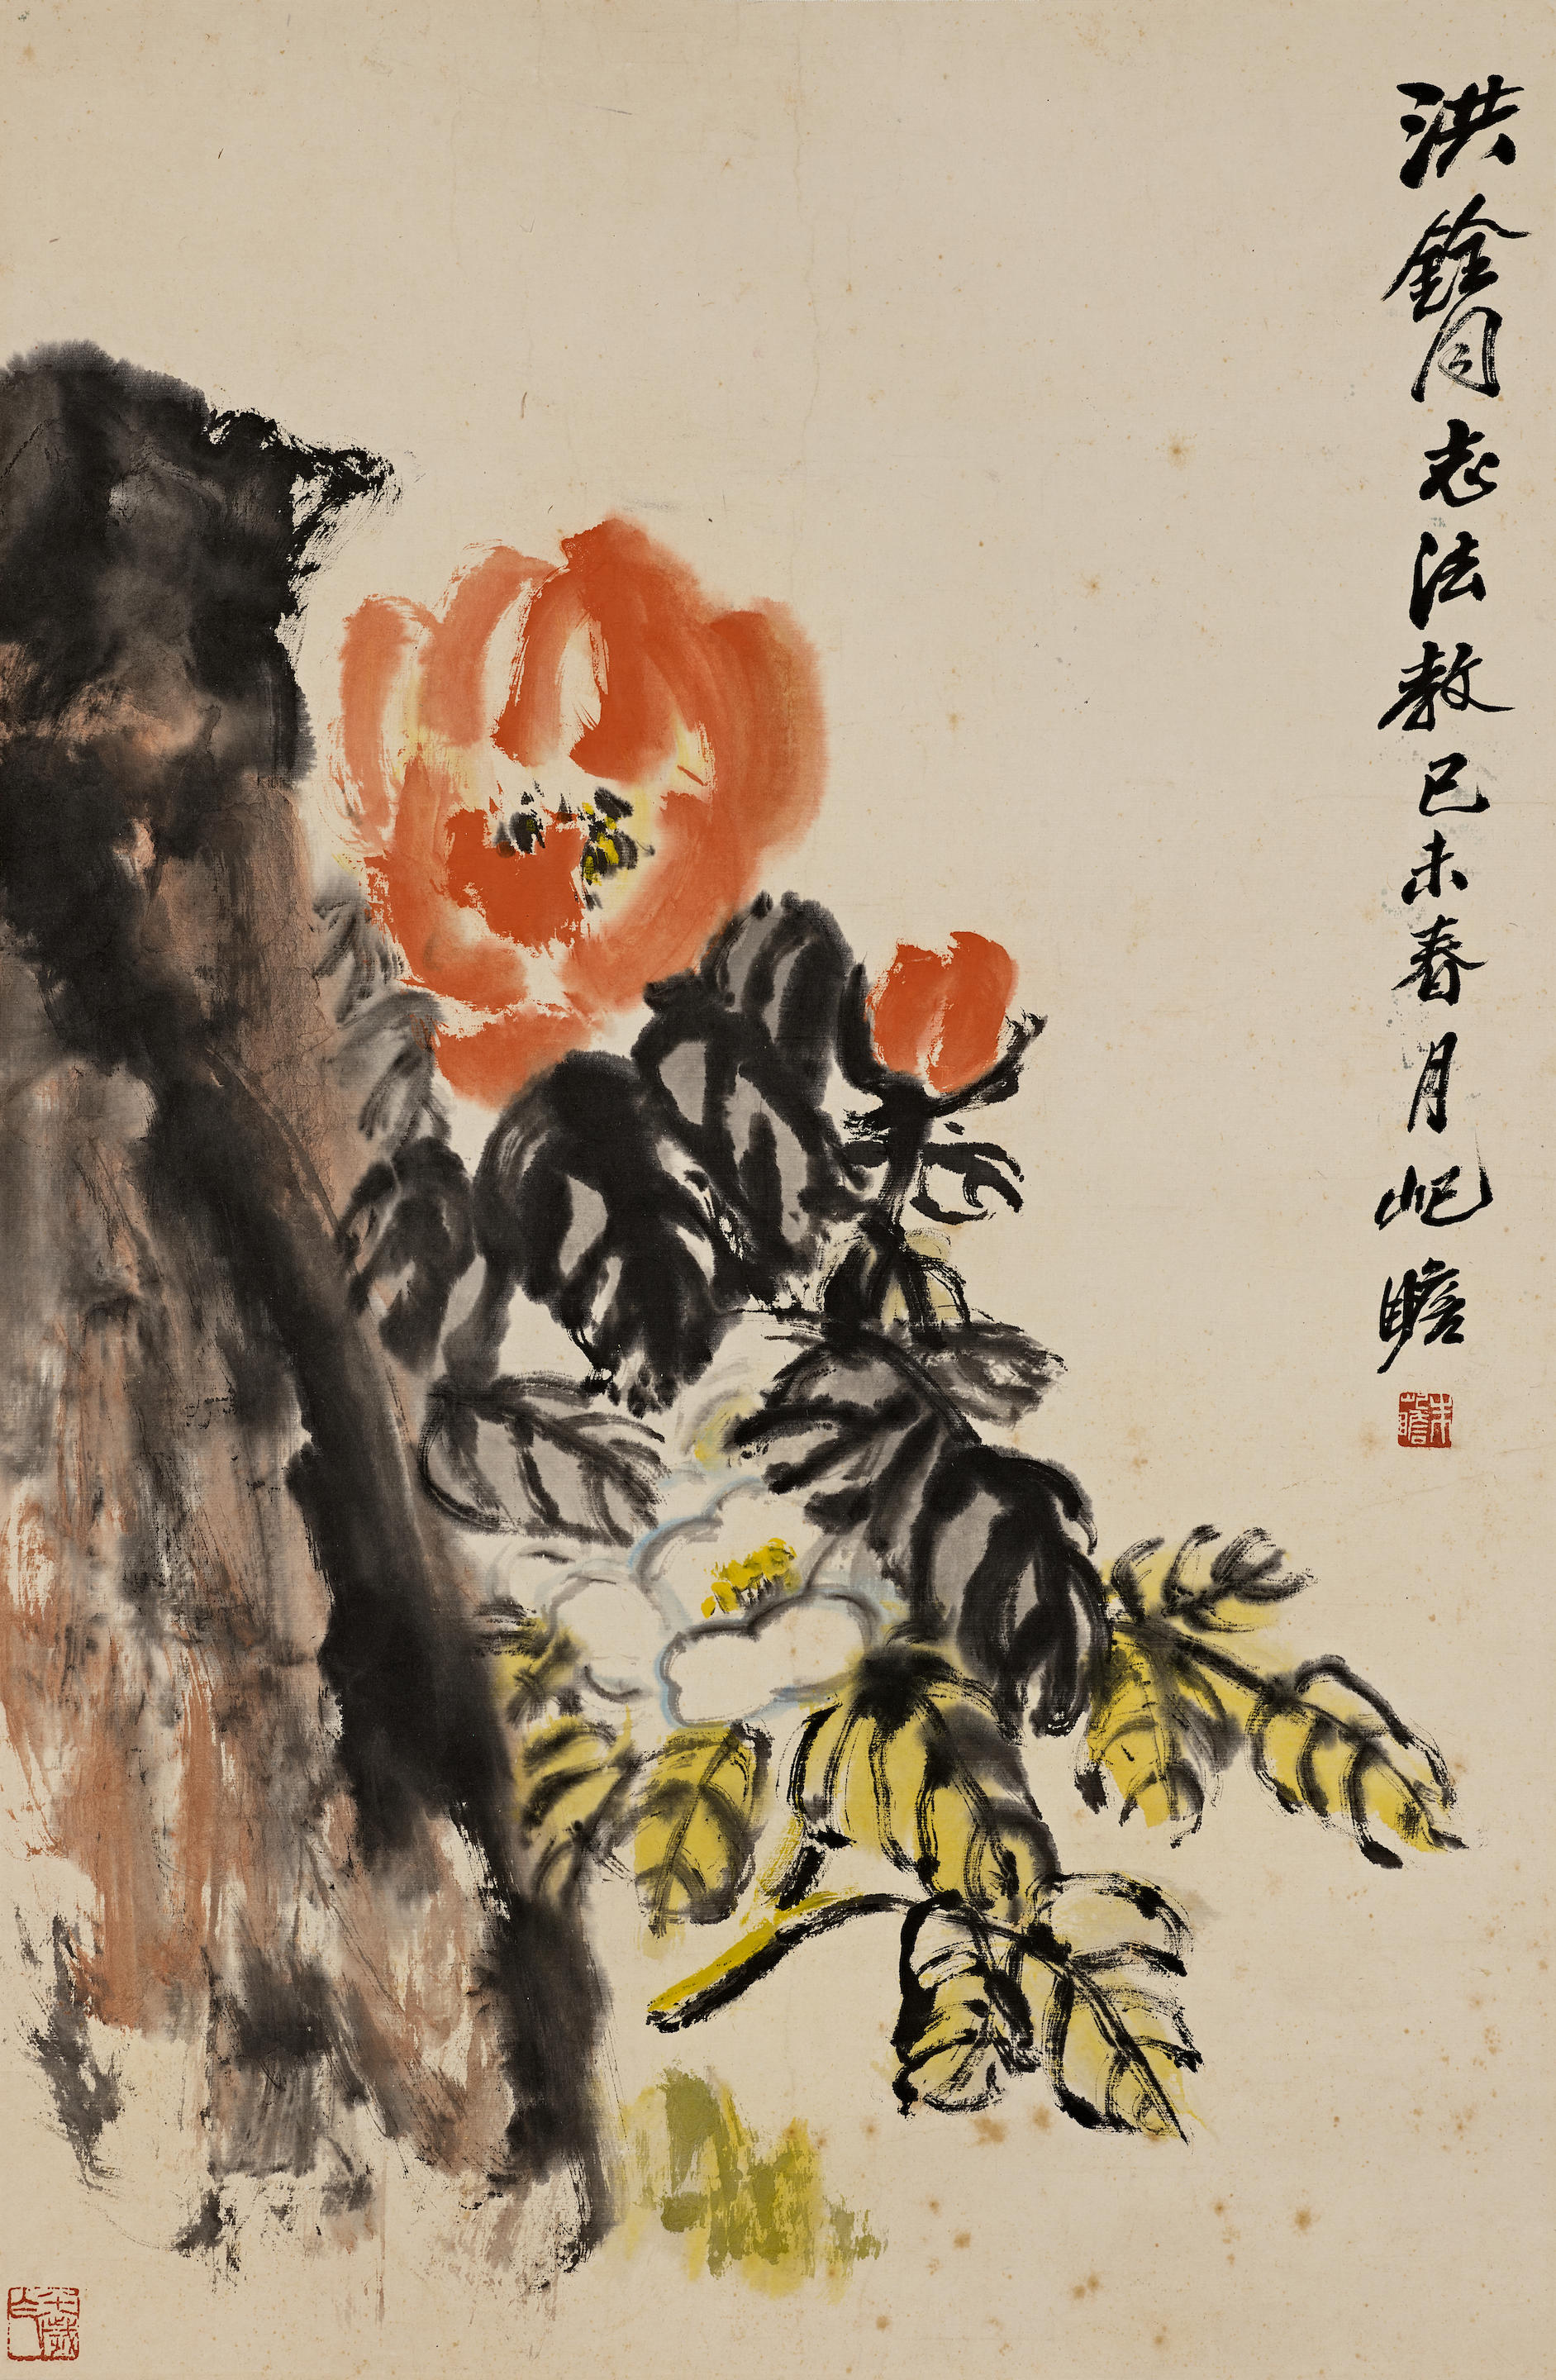 洪銓同志法教己未春月屺瞻
朱屺瞻